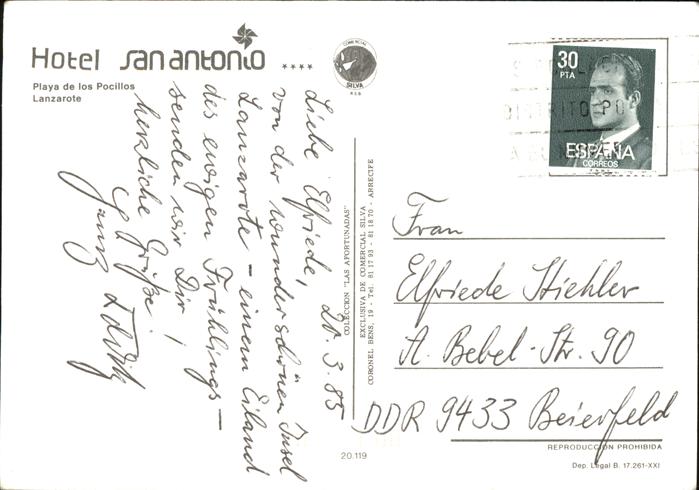 Hotel san antonio ****
Playa de los Pocillos
Lanzarote
COMERCIAL
SILVA
30
PTA
ESPAÑA
CORREOS
Liebe Elfriede, 20.3.85
von der wunderschönen Insel
Lanzarote - einem Eiland
des ewigen Frühlings -
senden wir Dir,
herzliche Grüße.
COLECCION "LAS AFORTUNADAS"
EXCLUSIVA DE COMERCIAL SILVA
CORONEL BENS, 19 - Tel. 81 17 93 - 81 18 70 - ARRECIFE
Frau
Elfriede Stiehler
A. Bebel-Str. 90
DDR 9433 Beierfeld
REPRODUCCION PROHIBIDA
20.119
Dep. Legal B. 17.261-XXI